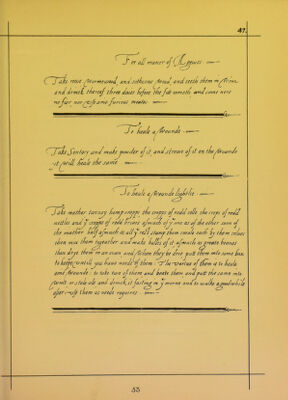 47.
For all maner of Agues
Take rewe, wormewood, and sothorne wood, and seeth them in wine
and drinck thereof three daies before the fitt cometh and come next
no fier nor
To heale a Wounde
Take Sentory and make powder of it, and strewe of it on the Wounde
it will heale the same
To heale a Wounde lightlie
Take mother tansey hemp cropps the cropps of redd colle the crops of redd
nettles and ye cropps of redd briere asmuch of ye one as of the other
the mather half asmuch as all ye rest stamp them small each by them selves
then mix them togeather and make balles of it asmuch as greate beanes
than drye them in an oven and When they be drie putt them into some box
to keepe untill you have neede of them. The vertue of them is to heale
anie Wounde: to take two of them and beate them and putt the same into
white or stale ale and drinck it fasting in ye morne and to walke a good while
after use them as neede requires
53